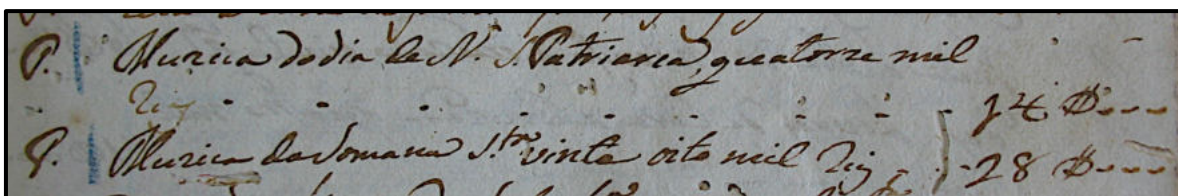 P. Muzica do dia de N. S. Patriarca, quatorze mil
Rˢ - - - - - - - - 14$---
P. Muzica da Somana S.ta vinte oito mil Rˢ - - 28$---